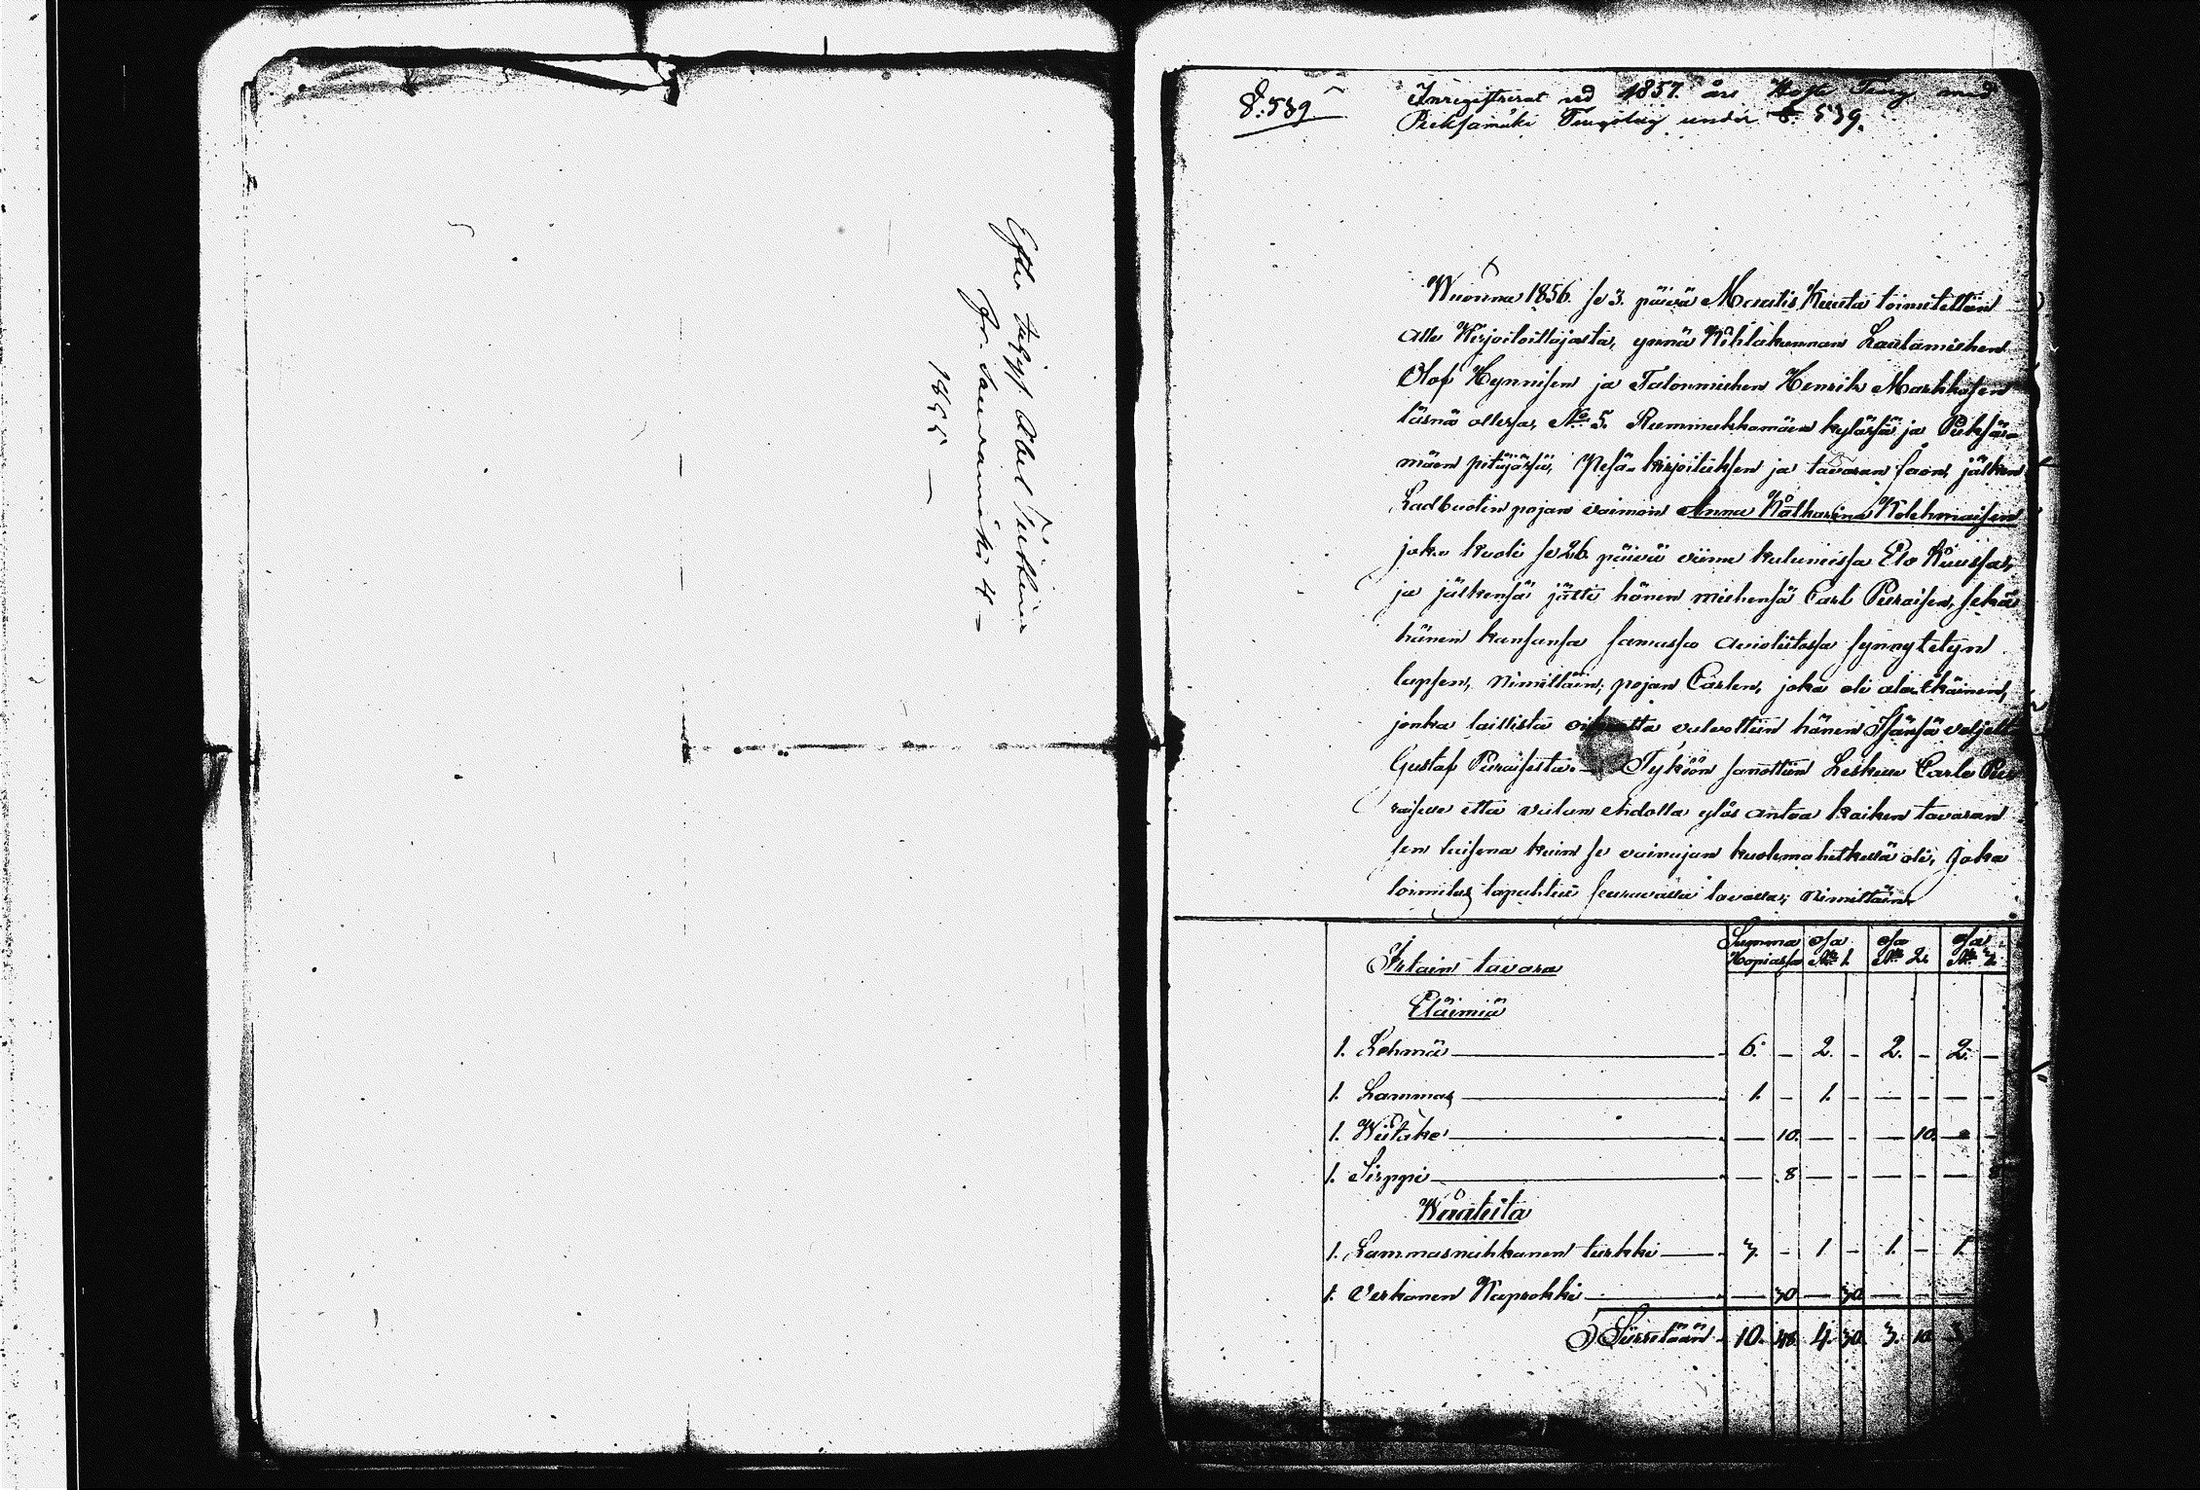 Efter tagpt. Abel Tiikkain
fr. Saunamäki 4 –
1855 –
§:539.
Inregistrerat vid 1857. års Höste Ting med
Pieksamäki Tingslag under §. 539.
Wuonna 1856. se 3. päivä Maalis Kuuta toimitettiin
alle Kirjoitoittajasta, ynnä Kihlakunnan Lautamiehen
Olof Hynnisen ja Talonmiehen Henrik Markkasen
läsnä ollessa, No 5. Rummukkamäen kylässä ja Pieksä-
mäen pitäjässä, Pesä-kirjoituksen ja tavaran jaon, jälken
Ladbuotin pojan vaimon Anna Katharina Kolehmaisen
joka kuoli se 26. päivä viime kuluneissa Elo Kuussa;
ja jälkensä jätti hänen miehensä Carl Pieraisen, sekä
hänen kansansa samassa avioliitossa synnytetyn
lapsen, nimittäin; pojan Carlen, joka oli ala-ikäinen,
jonka laillista oikeutta valvottiin hänen Isänsä veljeltä
Gustaf Pieraisesta. – Tyköön sanottiin Leskeue Carle Pie-
raiselle että valan ehdolla ylös antaa kaiken tavaran
sen laisena kuin se vainajan kuolema hetkellä oli, Joka
toimitus tapahtui seuraavassa tavassa; nimittäin
Irtain tavara
Summa Kopiassa
Osa No 1.
Osa No 2.
Osa No 3.
Eläimiä
1. Lehmä 6. – 2. – 2. – 2. –
1. Lammas 1. – 1. – – – – –
1. Wiitake – 10. – – – 10. – –
1. Sirppi – 8 – – – – – 8
Waateita
1. Lammasnahkanen turkki 3. – 1 – 1. – 1.
1. Verkanen Kaprokki – 30 – 30 – – –
Siirretään 10. 48. 4. 30. 3. 10. 3.